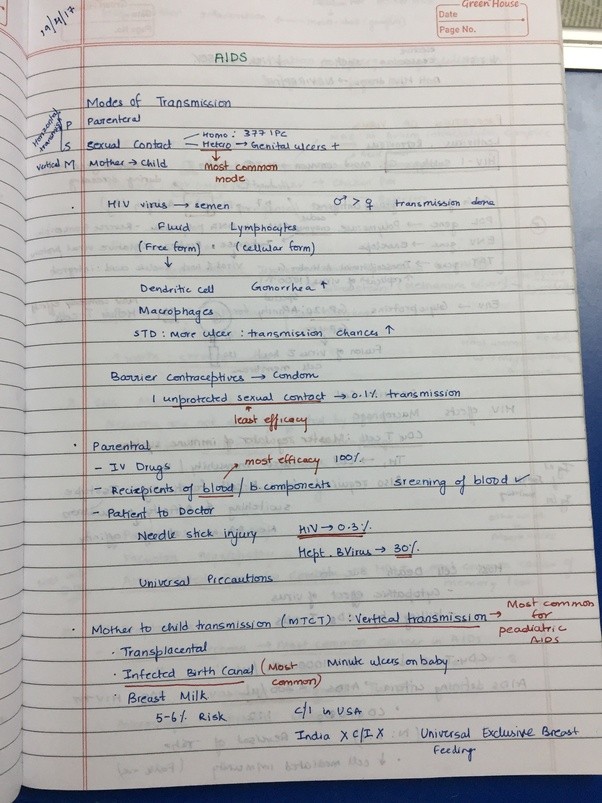 Green House
Date
Page No.
19/4/17
AIDS
Modes of Transmission
Horizontal
P Parenteral
S Sexual Contact Homo: 377 IPC
Hetero → Genital ulcers +
Vertical M Mother → Child
most common
mode
HIV virus → semen ♂ > ♀ transmission
Fluid Lymphocytes
(Free form) (cellular form)
↓
Dendritic cell Gonorrhea ↑
Macrophages
STD : More ulcer : transmission chances ↑
Barrier contraceptives → Condom
1 unprotected sexual contact → 0.1% transmission
least efficacy
• Parentral
- IV Drugs most efficacy 100%
- Reciepients of blood / B. components Sreening of blood ✓
- Patient to Doctor
Needle stick injury HIV → 0.3%
Hept. B Virus → 30%
Universal Precautions
• Mother to child transmission (MTCT) : Vertical transmission → Most common
for
peadiatric
AIDS
• Transplacental
• Infected Birth Canal (Most common) Minute ulcers on baby
• Breast Milk
5-6% Risk C/I in USA
India X C/I X Universal Exclusive Breast
Feeding